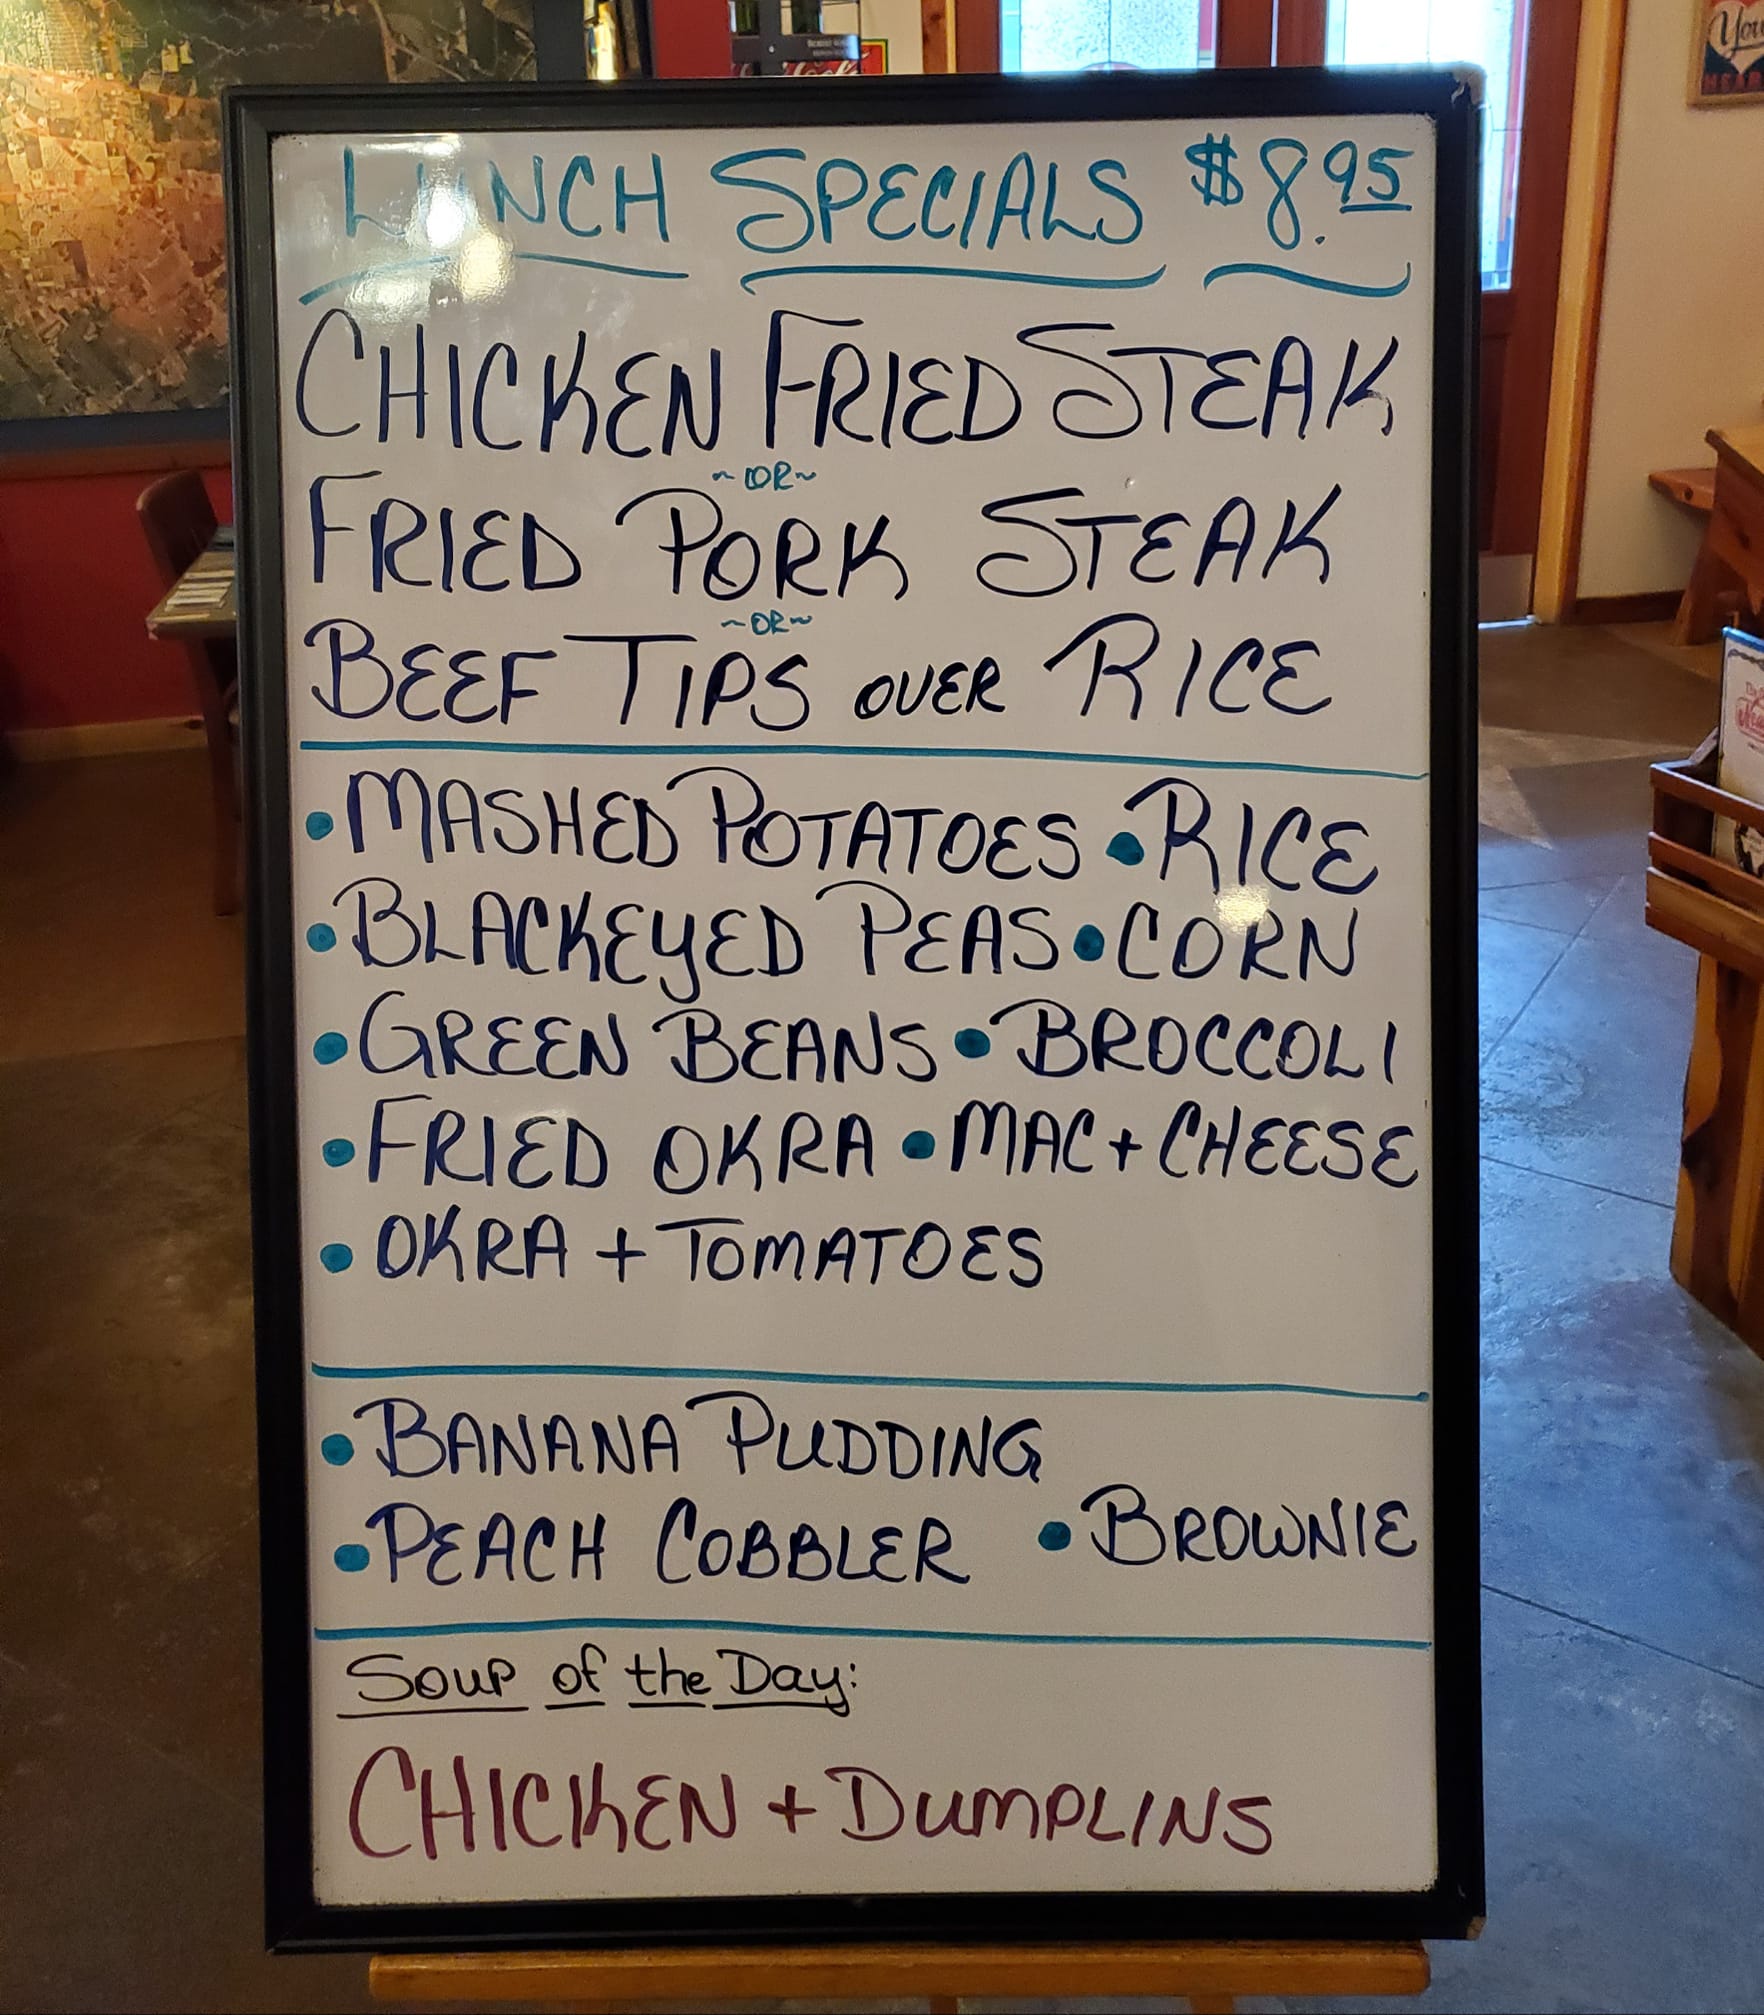 LUNCH SPECIALS $8.95
CHICKEN FRIED STEAK
~OR~
FRIED PORK STEAK
~OR~
BEEF TIPS OVER RICE
•MASHED POTATOES •RICE
•BLACKEYED PEAS •CORN
•GREEN BEANS •BROCCOLI
•FRIED OKRA •MAC + CHEESE
•OKRA + TOMATOES
•BANANA PUDDING
•PEACH COBBLER •BROWNIE
Soup of the Day:
CHICKEN + DUMPLINS